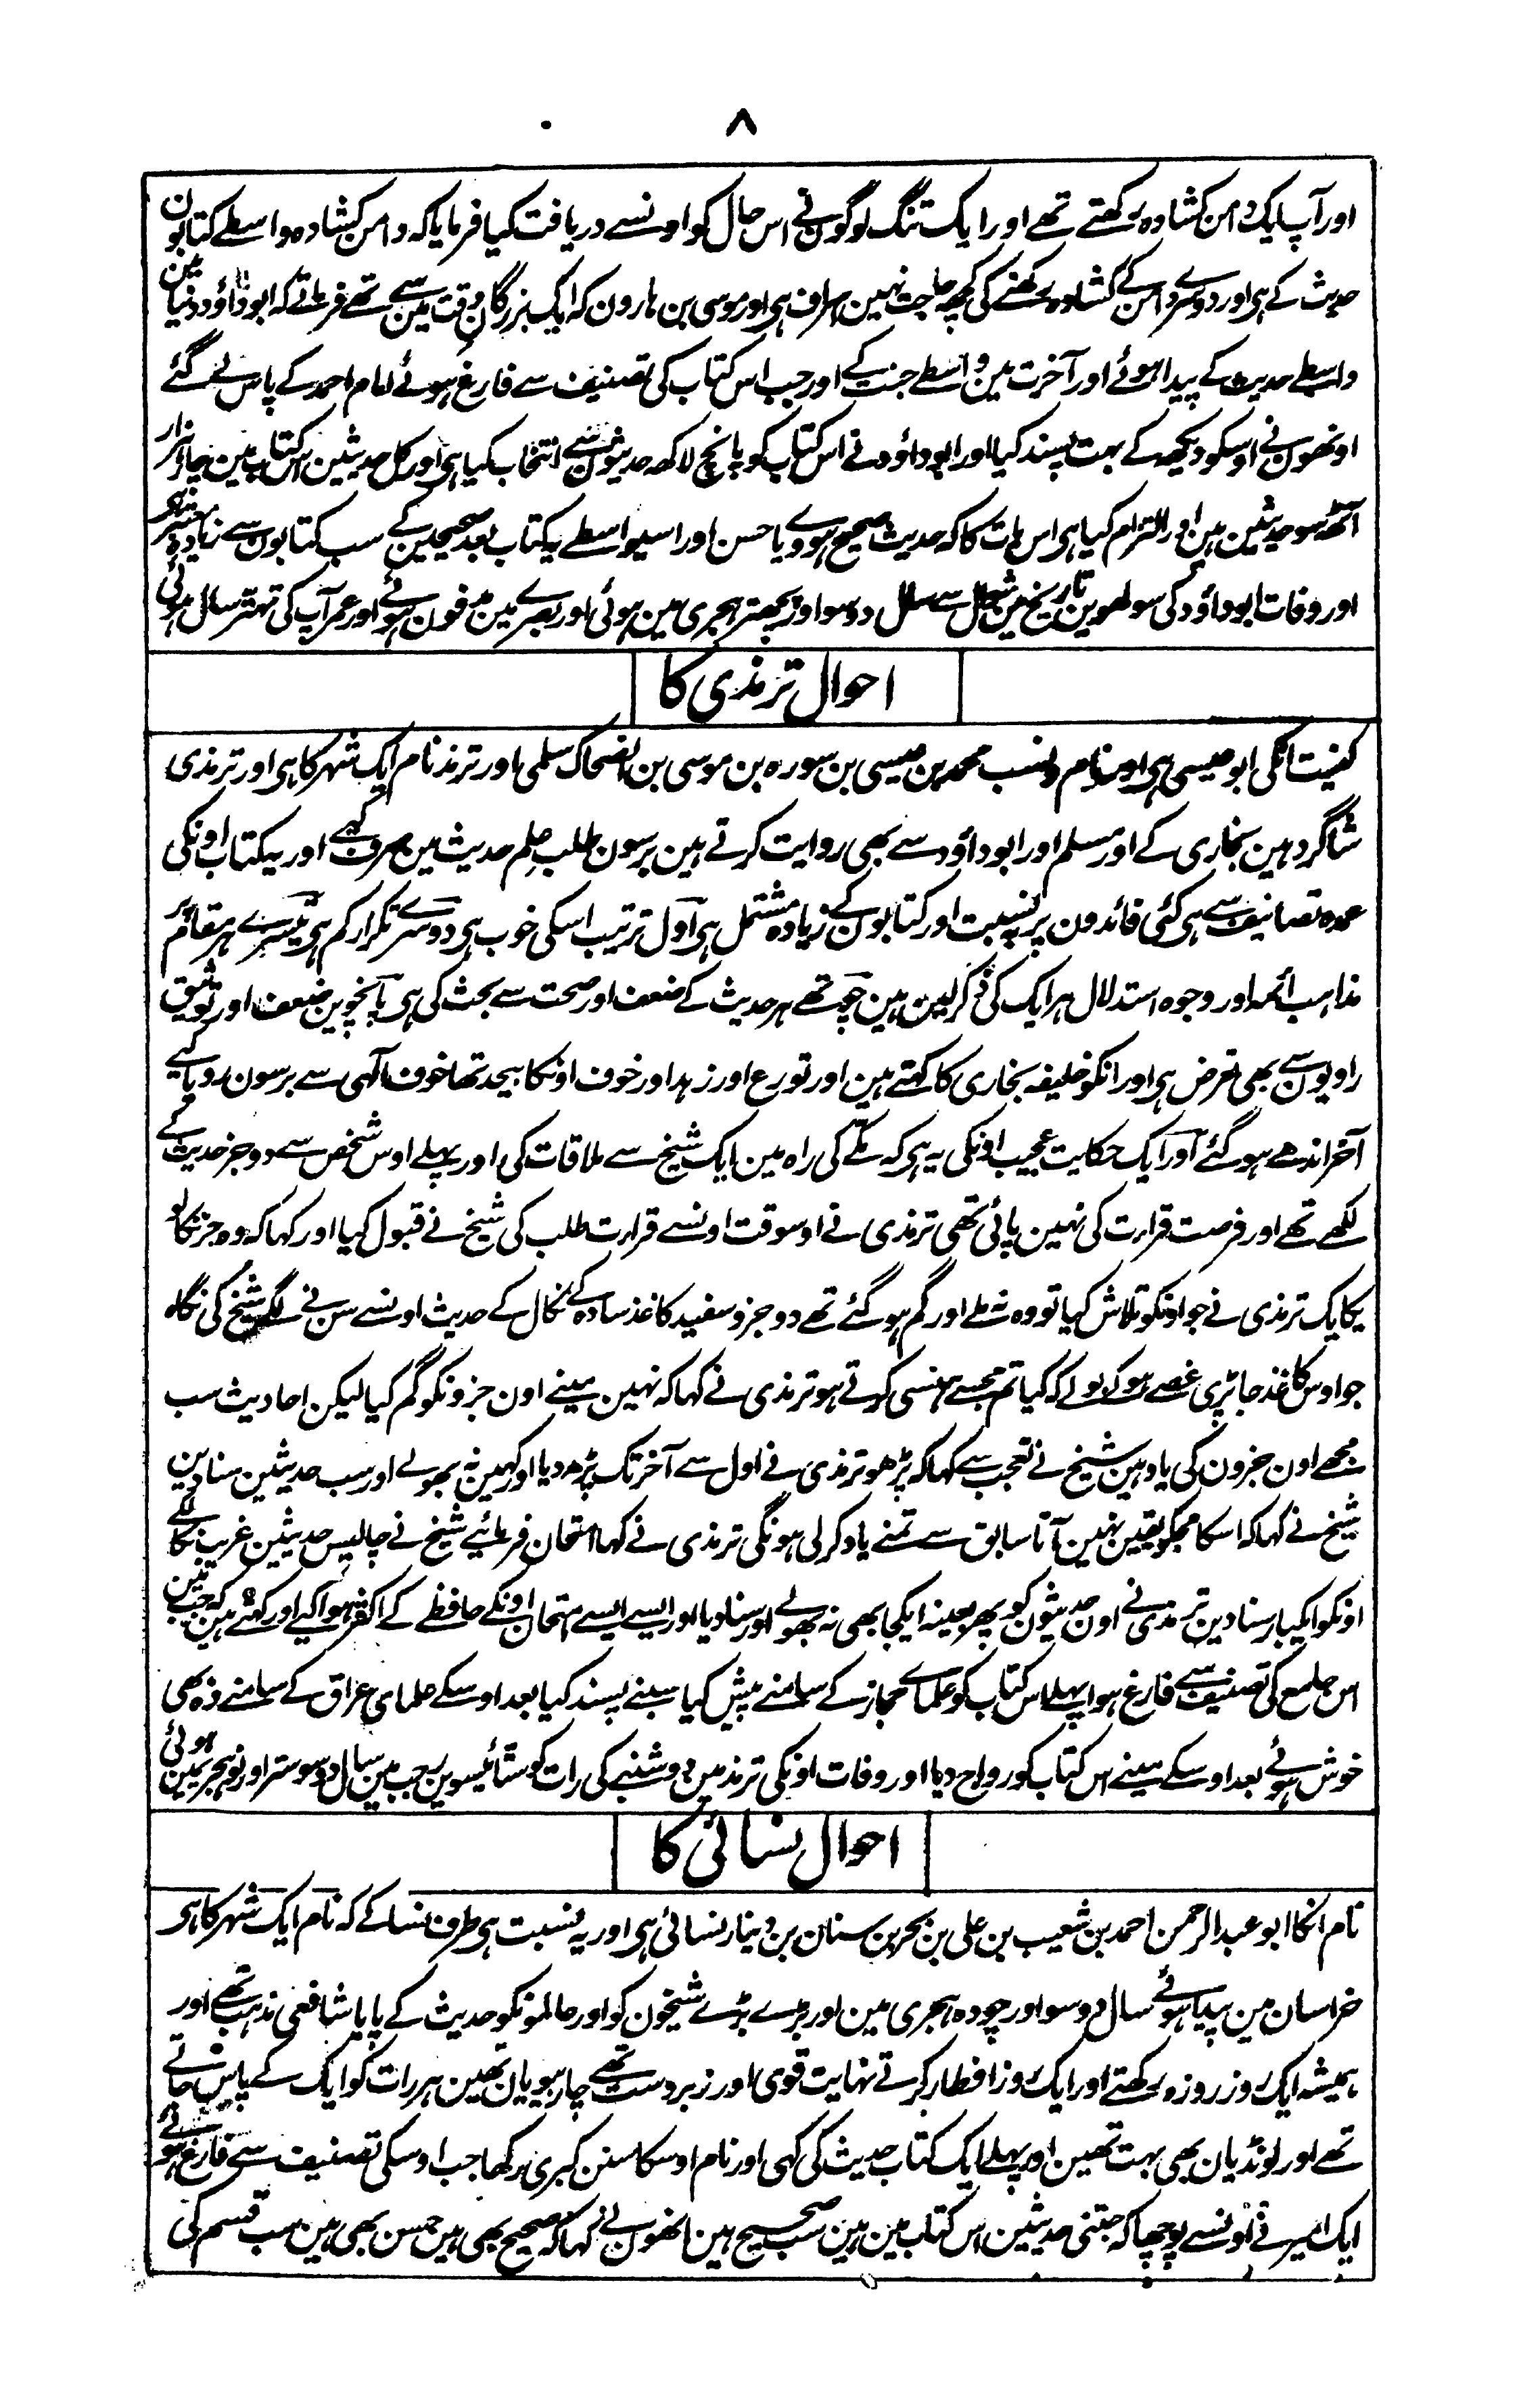 ۸
اور آپ ایک دامن کشادہ رکھتے تھے اور ایک تنگ لوگون نے اس حال کو اونسے دریافت کیا فرمایا کہ دامن کشادہ واسطے کتابون
حدیث کے ہی اور دوسرے دامن کے کشادہ رکھنے کی کچھ حاجت نہین اسراف ہی اور موسی بن ہارون کہ ایک بزرگان وقت مین سے تھے فرماتے کہ ابو داؤد دنیا مین
واسطے حدیث کے پیدا ہوئے اور آخرت مین واسطے جنت کے اور جب اس کتاب کی تصنیف سے فارغ ہوئے امام احمد کے پاس لے گئے
اونھون نے اوسکو دیکھ کے بہت پسند کیا اور ابو داؤد نے اس کتاب کو پانچ لاکھ حدیثون سے انتخاب کیا ہی اور کل حدیثین اس کتاب مین چار ہزار
آٹھ سو حدیثین ہین اور التزام کیا ہی اس بات کا کہ حدیث صحیح ہووے یا حسن اور اسیواسطے یہ کتاب بعد صحیحین کے سب کتابون سے زیادہ معتبر ہی
اور وفات ابو داؤد کی سولھوین تاریخ مین شوال سے سال دوسو اور پچھتر ہجری مین ہوئی اور بصرے مین مدفون ہوئے اور عمر آپ کی تہتر سال ہوئی
احوال ترمذی کا
کنیت انکی ابو عیسی ہی اور نام و نسب محمد بن عیسی بن سورہ بن موسی بن الضحاک سلمی اور ترمذ نام ایک شہر کا ہی اور ترمذی
شاگرد ہین بخاری کے اور مسلم اور ابو داؤد سے بھی روایت کرتے ہین برسون طلب علم حدیث مین صرف کیے اور یہ کتاب اونکی
عمدہ تصانیف سے ہی کئی فائدون پر بنسبت اور کتابون کے زیادہ مشتمل ہی اول ترتیب اسکی خوب ہی دوسرے تکرار کم ہی تیسرے ہر مقام پر
مذاہب ائمہ اور وجوہ استدلال ہر ایک کی ذکر کین ہین چوتھے ہر حدیث کے ضعف اور صحت سے بحث کی ہی پانچوین ضعف اور توثیق
راویون سے بھی تعرض ہی اور انکو خلیفہ بخاری کا کہتے ہین اور تورع اور زہد اور خوف اونکا بیحد تھا خوف الہی سے برسون رویا کیے
آخر اندھے ہو گئے اور ایک حکایت عجیب اونکی یہ ہی کہ مکے کی راہ مین ایک شیخ سے ملاقات کی اور پہلے اوس شخص سے دو جز حدیث کے
لکھے تھے اور فرصت قراءت کی نہین پائی تھی ترمذی نے اوسوقت اونسے قراءت طلب کی شیخ نے قبول کیا اور کہا کہ وہ جز نکالو
یکایک ترمذی نے جو اونکو تلاش کیا تو وہ نملے اور گم ہو گئے تھے دو جزو سفید کاغذ سادہ کے نکال کے حدیث اونسے سن نے لگے شیخ کی نگاہ
جو اوس کاغذ جا پڑی غصے ہو کے بولے کہ کیا تم مجھسے ہنسی کرتے ہو ترمذی نے کہا کہ نہین مینے اون جزونکو گم کیا لیکن احادیث سب
مجھے اون جزون کی یاد ہین شیخ نے تعجب سے کہا کہ پڑھو ترمذی نے اول سے آخر تک پڑھ دیا اور کہین نہ بھولے اور سب حدیثین سنا دین
شیخ نے کہا کہ اسکا مجکو یقین نہین آتا سابق سے تمنے یاد کر لی ہونگی ترمذی نے کہا امتحان فرمائیے شیخ نے چالیس حدیثین غریب نکالکے
اونکو ایکبار سنا دین ترمذی نے اون حدیثون کو پھر بعینہ ایکجا بھی نہ بھولے اور سنا دیا اور ایسے ایسے امتحان اونکے حافظے کے اکثر ہوا کیے اور کہتے ہین کہ جب مین
اس جامع کی تصنیف سے فارغ ہوا پہلے اس کتاب کو علمائے حجاز کے سامنے پیش کیا سبنے پسند کیا بعد اوسکے علمای عراق کے سامنے وہ بھی
خوش ہوئے بعد اوسکے مینے اس کتاب کو رواج دیا اور وفات اونکی ترمذ مین دوشنبے کی رات کو ستائیسوین رجب مین سال دوسو ستر اور نو ہجری مین ہوئی
احوال نسائی کا
نام انکا ابو عبد الرحمن احمد بن شعیب بن علی بن بحر بن سنان بن دینار نسائی ہی اور یہ نسبت ہی طرف نسا کے کہ نام ایک شہر کا ہی
خراسان مین پیدا ہوئے سال دوسو اور چودہ ہجری مین اور بڑے بڑے شیخون کو اور عالمونکو حدیث کے پایا شافعی مذہب تھے اور
ہمیشہ ایک روز روزہ رکھتے اور ایک روز افطار کرتے نہایت قوی اور زبردست تھے چار بیویان تھین ہر رات کو ایک کے پاس جاتے
تھے اور لونڈیان بھی بہت تھین اور پہلے ایک کتاب حدیث کی کہی اور نام اوسکا سنن کبری رکھا جب اوسکی تصنیف سے فارغ ہوئے
ایک امیر نے اونسے پوچھا کہ جتنی حدیثین اس کتاب مین ہین سب صحیح ہین انھون نے کہا کہ صحیح بھی ہین حسن بھی ہین سب قسم کی